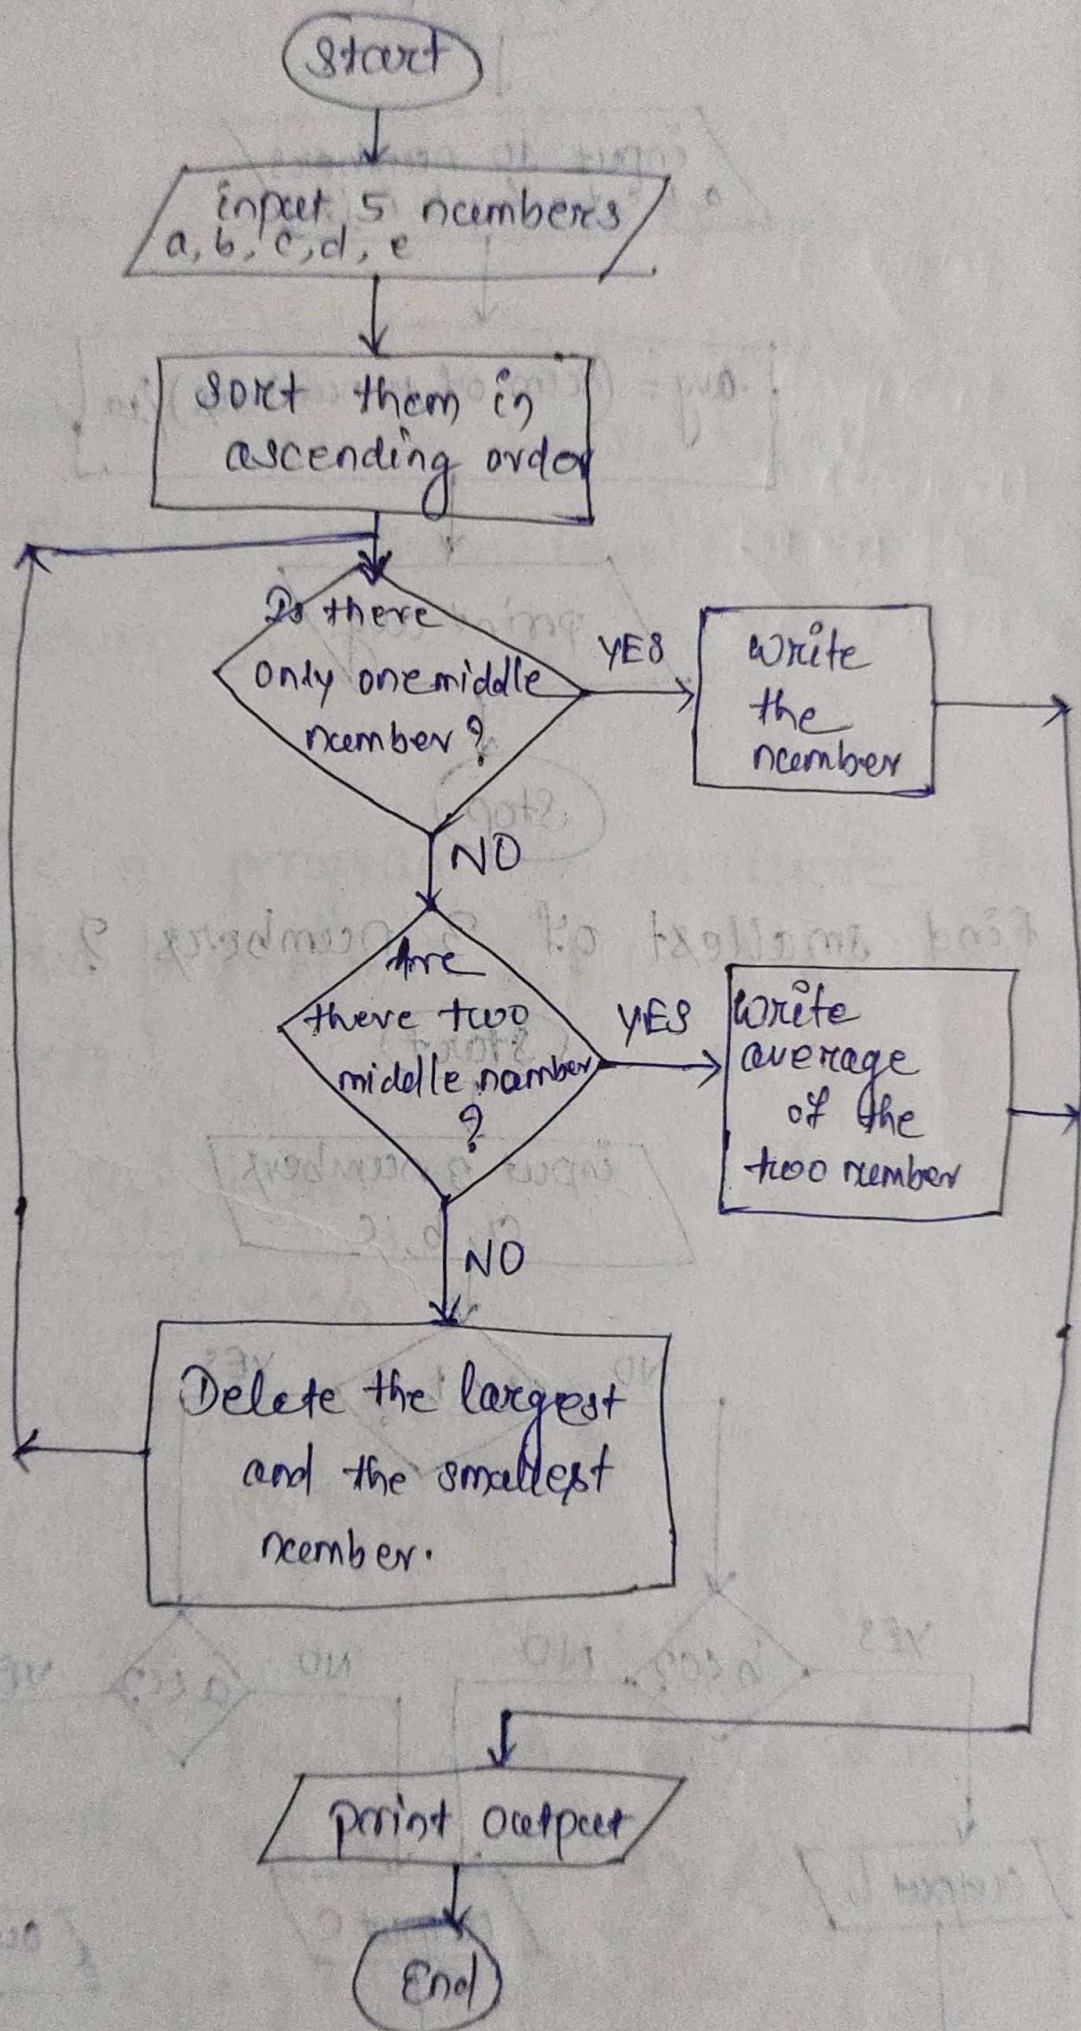 Start
input 5 numbers
a, b, c, d, e
Sort them in
ascending order
Is there
only one middle
number?
YES
Write
the
number
NO
Are
there two
middle number
?
YES
Write
average
of the
two number
NO
Delete the largest
and the smallest
number.
print output
End